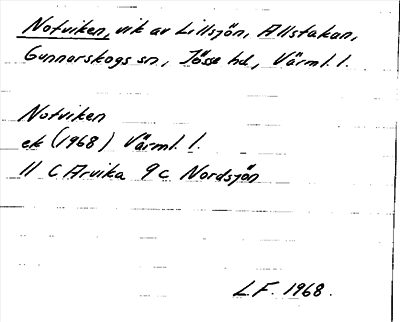 Notviken, vik av Lillsjön, Allstakan,
Gunnarskogs sn, Jösse hd, Värml. l.
Notviken
ek (1968) Värml. l.
11 C Arvika 9 c Nordsjön
L.F. 1968.